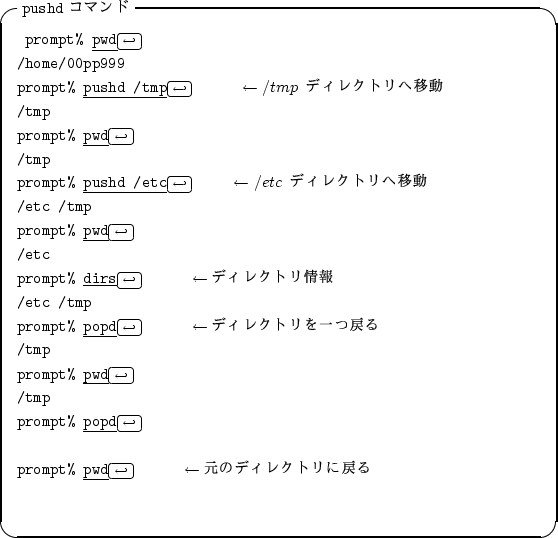 pushd コマンド
prompt% pwd↩
/home/00pp999
prompt% pushd /tmp↩ ←/tmp ディレクトリへ移動
/tmp
prompt% pwd↩
/tmp
prompt% pushd /etc↩ ←/etc ディレクトリへ移動
/etc /tmp
prompt% pwd↩
/etc
prompt% dirs↩ ←ディレクトリ情報
/etc /tmp
prompt% popd↩ ←ディレクトリを一つ戻る
/tmp
prompt% pwd↩
/tmp
prompt% popd↩
prompt% pwd↩ ←元のディレクトリに戻る